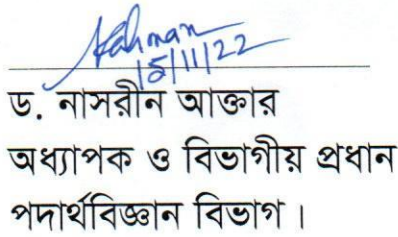 Rahman
15/11/22
ড. নাসরীন আক্তার
অধ্যাপক ও বিভাগীয় প্রধান
পদার্থবিজ্ঞান বিভাগ।